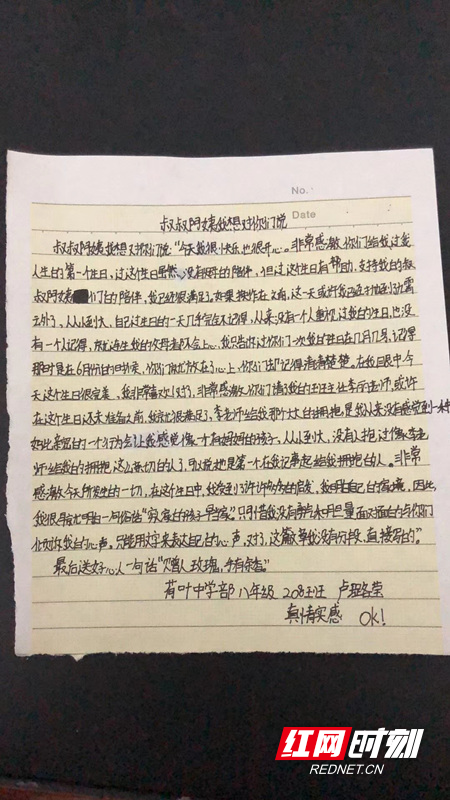 No.
Date
叔叔阿姨我想对你们说
叔叔阿姨我想对你们说:“今天我很快乐也很开心。非常感激你们给我过我
人生的第一个生日,过这个生日虽然没有父母的陪伴,但过这个生日有帮助、支持我的叔
叔阿姨们的陪伴,我已经很满足了,如果换作在之前,这一天或许我已经
去外了,从小到大,自己过生日的一天几乎完全不记得,从来没有一个人重视过我的生日,也没
有一个人记得,就连生我的父母者不会上心。我只告诉过你们一次我的生日在几月几号,记得
那时是在6月份的时候,你们就放在了心上,你们却记得清清楚楚。在我眼中今
天这个生日很完美,我非常喜欢!对了,非常感激你们请了我的班主任李老师,或许
在这个生日还未准备之前,我就很满足了,李老师给我那个大大的拥抱,是我从来没有感觉到
如此亲密的一个行为,让我感觉像一个有妈妈的孩子,从小到大,没有人抱过像李老
师给我的拥抱这么亲切的人了,可以说她是第一个在我记事起给我拥抱的人。非常
感激今天所发生的一切,在这个生日中,我受到了许许多多的启发,我明白自己的困境,因此,
我很早就明白一句俗话“穷人的孩子早当家”。只可惜我没有勇气来用口量面对面的与你们
我的心声。只能用文字来表达自己的心声,对了,这篇文章我没有分段,直接写的”。
最后送好心人一句话“赠人玫瑰,手有余香”
荷叶中学部 八年级 208班 卢
真情实感 OK!
红网时刻
REDNET.CN